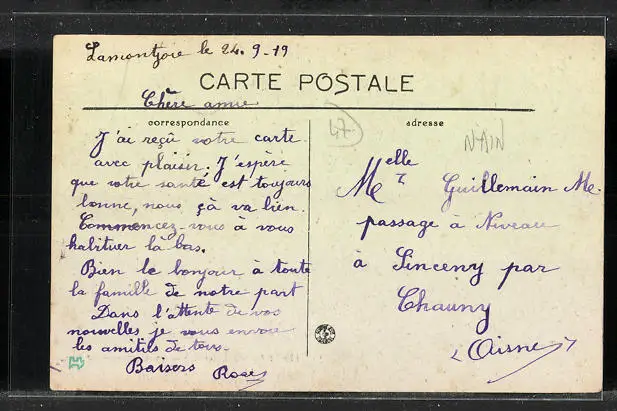 Lamontjoie le 24.9-19
CARTE POSTALE
Chère amie
correspondance
adresse
47
NAIN
J'ai reçu votre carte
avec plaisir. J'espère
que votre santé est toujours
bonne, nous çà va bien.
Commencez-vous à vous
habituer là bas.
Bien le bonjour à toute
la famille de notre part
Dans l'attente de vos
nouvelles je vous envoie
les amitiés de tous.
Baisers Rose
Melle Guillemain Me.
passage à Niveau
à Sinceny par
Chauny
(Aisne)